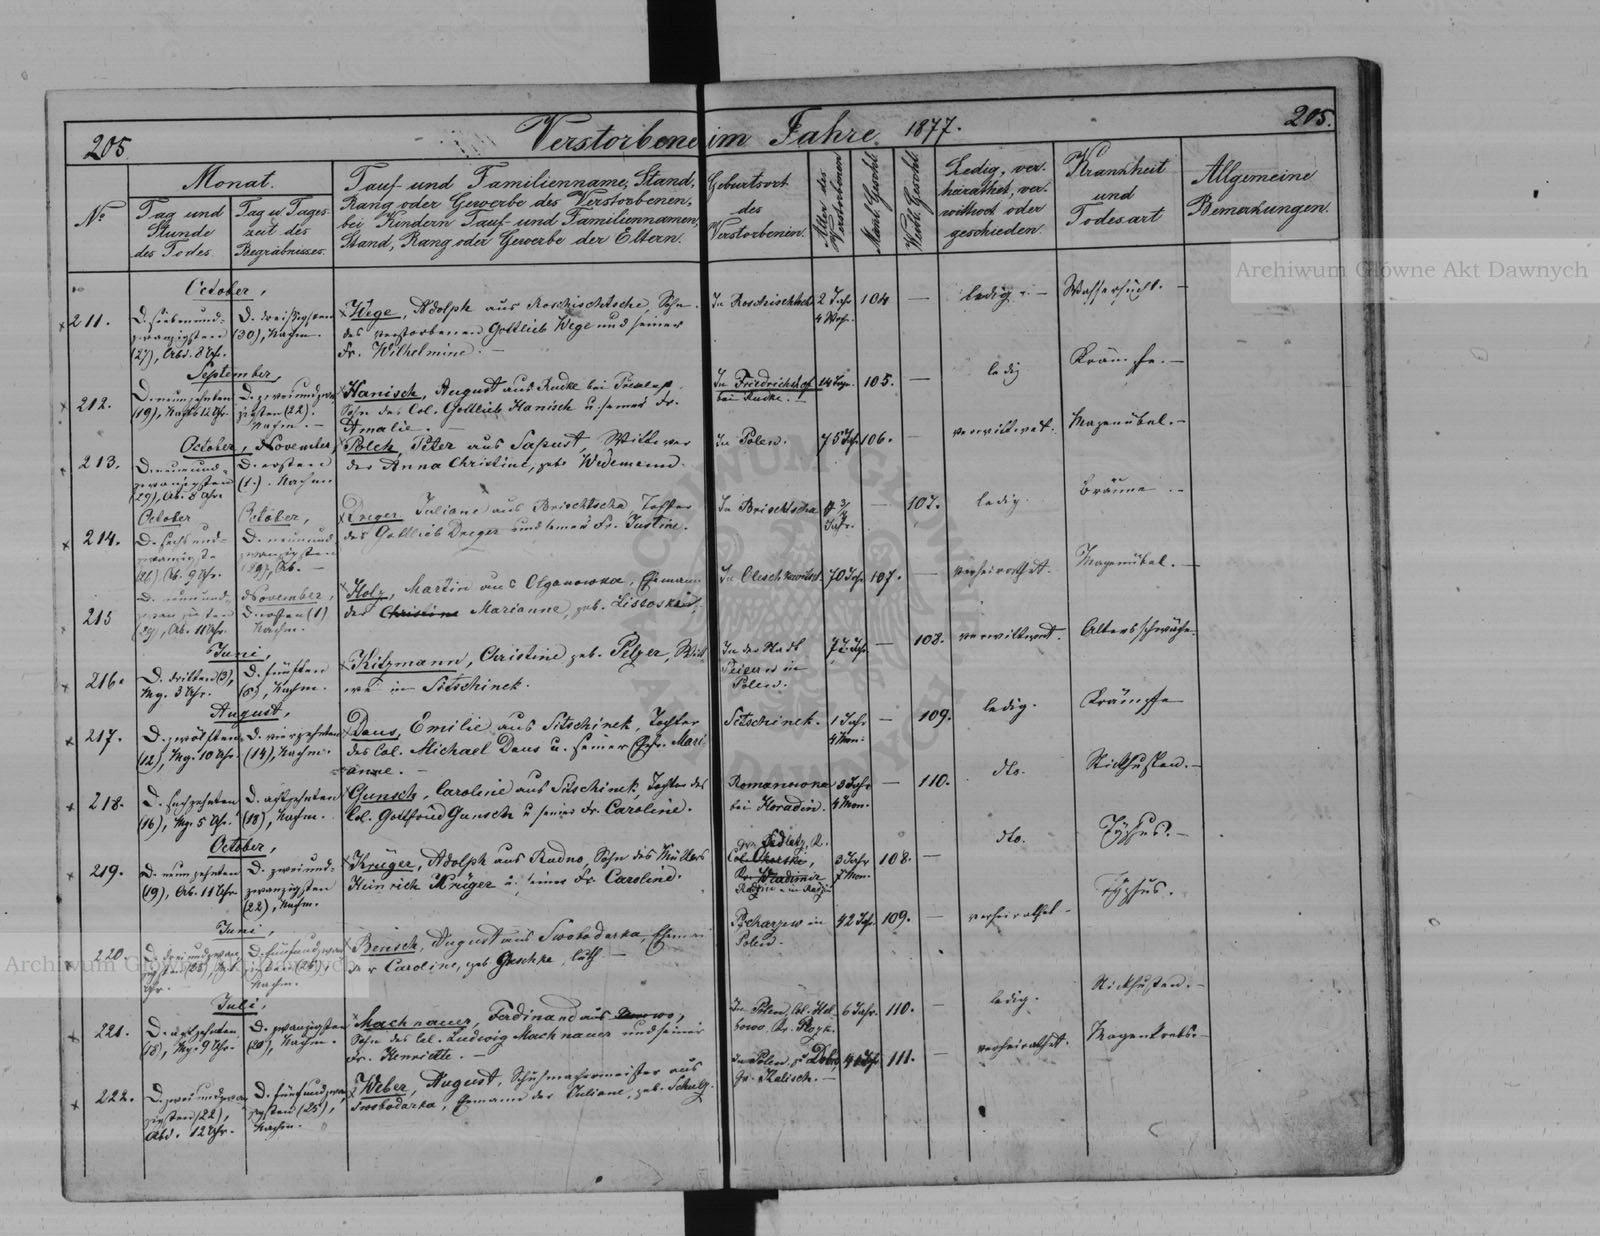 205.
Verstorbene im Jahre 1877.
205.
Archiwum Główne Akt Dawnych
No
Monat.
Tag und Stunde des Todes
Tag u. Tages-zeit des Begräbnisses.
Tauf- und Familienname, Stand,
Rang oder Gewerbe des Verstorbenen,
bei Kindern Tauf- und Familiennamen,
Stand, Rang oder Gewerbe der Eltern.
Geburtsort
des
Verstorbenen.
Alter des Verstorbenen
Männl. Geschl.
Weibl. Geschl.
Ledig, ver-
heirathet, ver-
wittwet oder
geschieden.
Krankheit
und
Todesart
Allgemeine
Bemerkungen.
October,
211.
D. siebenund-
zwanzigsten
(27), Abd. 8 Uhr.
(30), Nachm.
Wege, Adolph aus Roschischtsche, Sohn
des verstorbenen Gottlieb Wege und seiner
Fr. Wilhelmine. —
2 Jahr
4 Woch.
104
—
ledig. —
Wassersucht. —
September,
212.
D. neunzehnten
(19),
D. zweiundzwan-
zigsten (22).
Nachm. —
Hanisch, August aus Rudke bei
Sohn des Col. Gottlieb Hanisch u. seiner Fr.
Amalie. —
In Friedrichshof
bei Rudke. —
14 Tage.
105.
—
ledig
Krämpfe. —
October, November,
213.
D. neunund-
zwanzigsten
(29), Ab. 8 Uhr
D. ersten
(1.). Nachm.
Polek, Peter aus Sapust, Wittwer
der Anna Christine, geb. Wedemann.
In Polen.
75 Jahr.
106.
—
verwittwet.
Magenübel. —
October
October,
214.
D. sechsund-
zwanzigste
(26). Ab. 9 Uhr.
D. neunund-
zwanzigsten
(29), Ab. —
Dreger Juliane aus Brischtscha, Tochter
des Gottlieb Dreger und seiner Fr. Justine.
In Brischtscha
Jahr.
—
107.
ledig.
Bräune. —
November,
215
D. neunund-
zwanzigsten
(29), Ab. 11 Uhr.
D. ersten (1)
Nachm.
Holz, Martin aus Olganowka, Ehemann
der Christine Marianne, geb.
70 Jahr
107.
—
verheirathet.
Magenübel. —
Juni,
216.
D. dritten (3),
Mg. 3 Uhr.
D. fünften
(5), Nachm.
Kitzmann, Christine geb. Pelzer, Witt-
we in Sitschinek.
In der Stadt
in
Polen.
72 Jahr
—
108.
verwittwet.
Altersschwäche.
August,
217.
D. zwölften
(12), Mg. 10 Uhr
D. vierzehnten
(14), Nachm.
Daus, Emilie aus Sitschinek, Tochter
des Col. Michael Daus u. seiner Ehefr. Mari-
anne. —
Sitschinek.
1 Jahr
4 Mon.
—
109.
ledig.
Krämpfe
218.
D. sechzehnten
(16), Mg. 5 Uhr.
D. achtzehnten
(18), Nachm.
Gunsch, Caroline aus Sitschinek, Tochter des
Col. Gottfried Gunsch u. seiner Fr. Caroline.
bei Horadin.
3 Jahr
4 Mon.
—
110.
dto.
Stickhusten. —
October,
219.
D. neunzehnten
(19), Ab. 11 Uhr
D. zweiund-
zwanzigsten
(22), Nachm.
Krüger, Adolph aus Rudno, Sohn des Müllers
Heinrich Krüger u. seiner Fr. Caroline.
3 Jahr
7 Mon.
108.
—
dto.
Typhus. —
Juni,
220.
D. dreiundzwan-
zigsten
Uhr. —
D. fünfundzwan-
zigsten (25),
Nachm.
Benisch, August aus Swobodarka, Ehemann
der Caroline, geb. Geschke, luth —
in
Polen.
42 Jahr.
109.
—
verheirathet —
Typhus.
Juli,
221.
D. achtzehnten
(18), Mg. 9 Uhr.
D. zwanzigsten
(20), Nachm.
Machnauer, Ferdinand aus
Sohn des Col. Ludwig Machnauer und seiner
Fr. Henriette. —
In Polen, Col.
6 Jahr.
110.
—
ledig.
Stickhusten. —
222.
D. zweiundzwan-
zigsten (22),
Abd. 12 Uhr.
D. fünfundzwan-
zigsten (25),
Nachm.
Weber, August, Schuhmachermeister aus
Swobodarka, Ehemann der Juliane, geb. Schulz.
In Polen,
Gr. Kalisch. —
111.
—
verheirathet.
Magenkrebs. —
Archiwum Główne Akt Dawnych